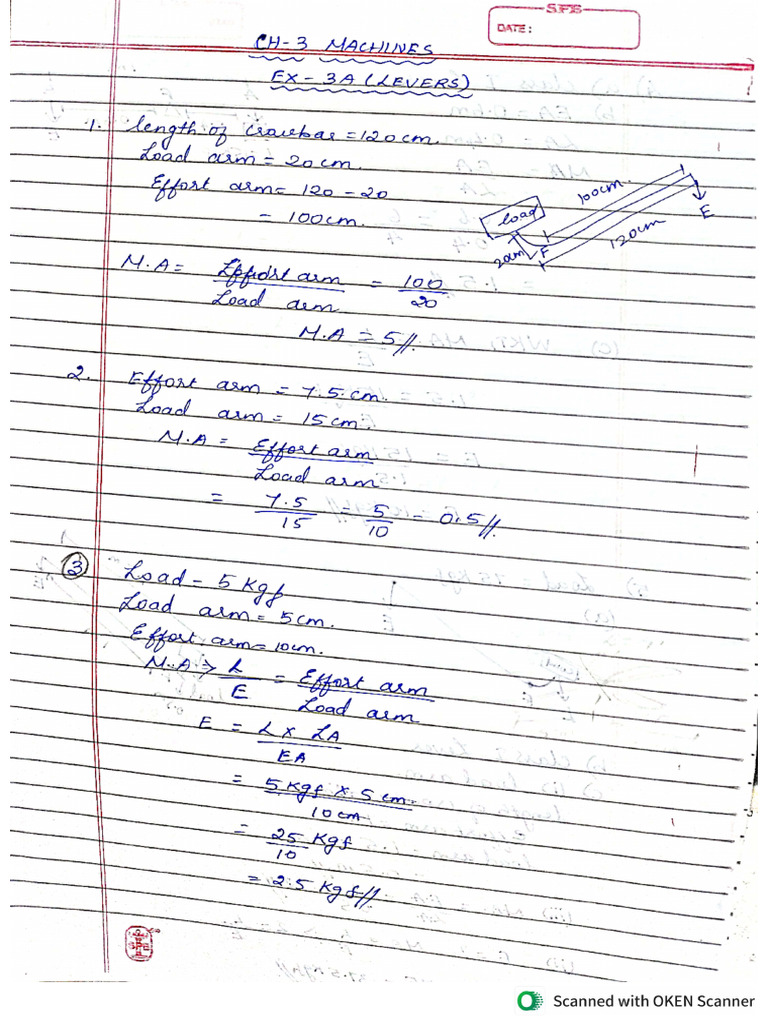 SFS
DATE:
CH-3 MACHINES
EX-3A (LEVERS)
1. length of crowbar = 120cm.
Load arm = 20cm.
Effort arm = 120 - 20
= 100cm.
load
100cm.
E
20cm
F
120cm
M.A = Effort arm / Load arm = 100/20
M.A = 5//.
2. Effort arm = 7.5.cm.
Load arm = 15cm.
M.A = Effort arm / Load arm
= 7.5/15 = 5/10 = 0.5//.
3 Load - 5 Kgf
Load arm = 5cm.
Effort arm = 10cm.
M.A => L/E = Effort arm / Load arm
E = L x LA / EA
= 5 Kgf x 5 cm / 10 cm
= 25/10 Kgf
= 2.5 Kgf//
Scanned with OKEN Scanner